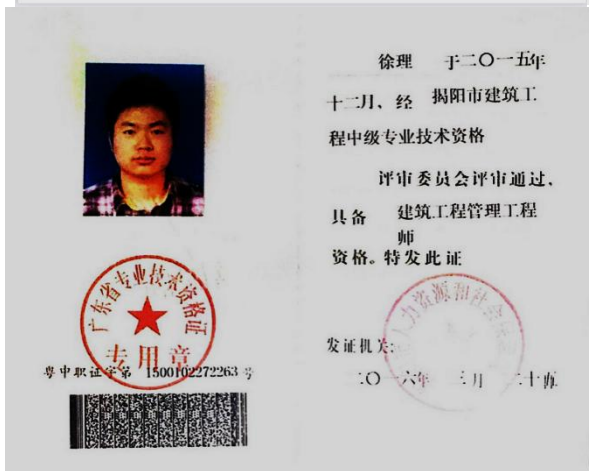 徐理 于二〇一五年
十二月、经 揭阳市建筑工
程中级专业技术资格
评审委员会评审通过、
具备 建筑工程管理工程
师
资格。特发此证
广东省专业技术资格证
专用章
粤中职证字第 1500102272263 号
人力资源和社会
发证机关:
二〇一六年 三月 二十五